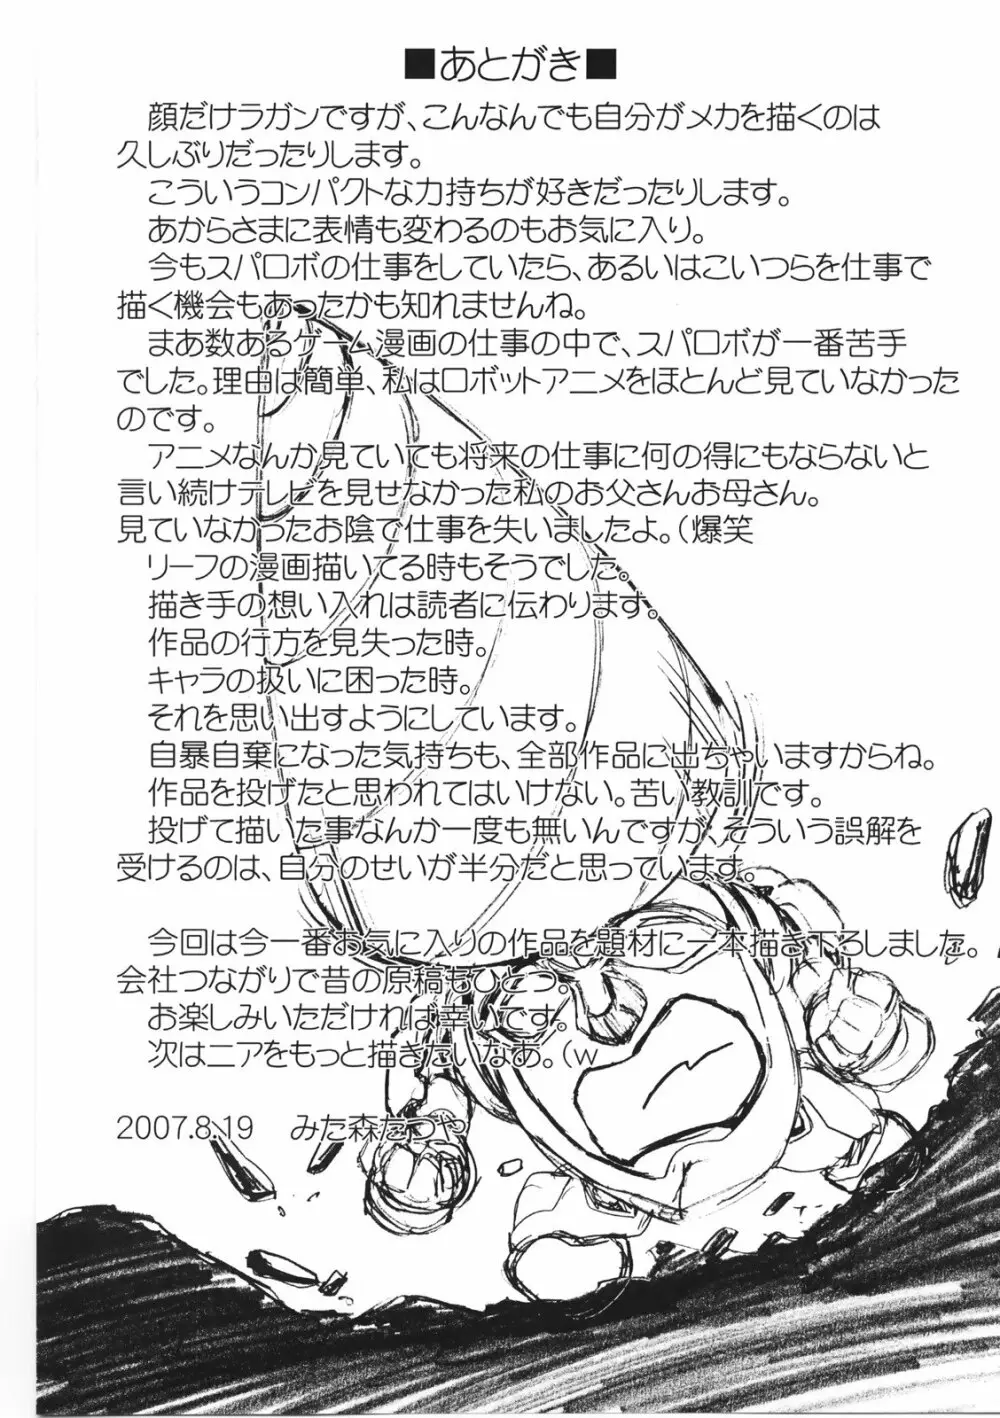 ■あとがき■
顔だけラガンですが、こんなんでも自分がメカを描くのは
久しぶりだったりします。
こういうコンパクトな力持ちが好きだったりします。
あからさまに表情も変わるのもお気に入り。
今もスパロボの仕事をしていたら、あるいはこいつらを仕事で
描く機会もあったかも知れませんね。
まあ数あるゲーム漫画の仕事の中で、スパロボが一番苦手
でした。理由は簡単、私はロボットアニメをほとんど見ていなかった
のです。
アニメなんか見ていても将来の仕事に何の得にもならないと
言い続けテレビを見せなかった私のお父さんお母さん。
見ていなかったお陰で仕事を失いましたよ。(爆笑
リーフの漫画描いてる時もそうでした。
描き手の想い入れは読者に伝わります。
作品の行方を見失った時。
キャラの扱いに困った時。
それを思い出すようにしています。
自暴自棄になった気持ちも、全部作品に出ちゃいますからね。
作品を投げたと思われてはいけない。苦い教訓です。
投げて描いた事なんか一度も無いんですが、そういう誤解を
受けるのは、自分のせいが半分だと思っています。
今回は今一番お気に入りの作品を題材に一本描き下ろしました。
会社つながりで昔の原稿もひとつ。
お楽しみいただければ幸いです。
次はニアをもっと描きたいなあ。(w
2007.8.19 みた森たつや